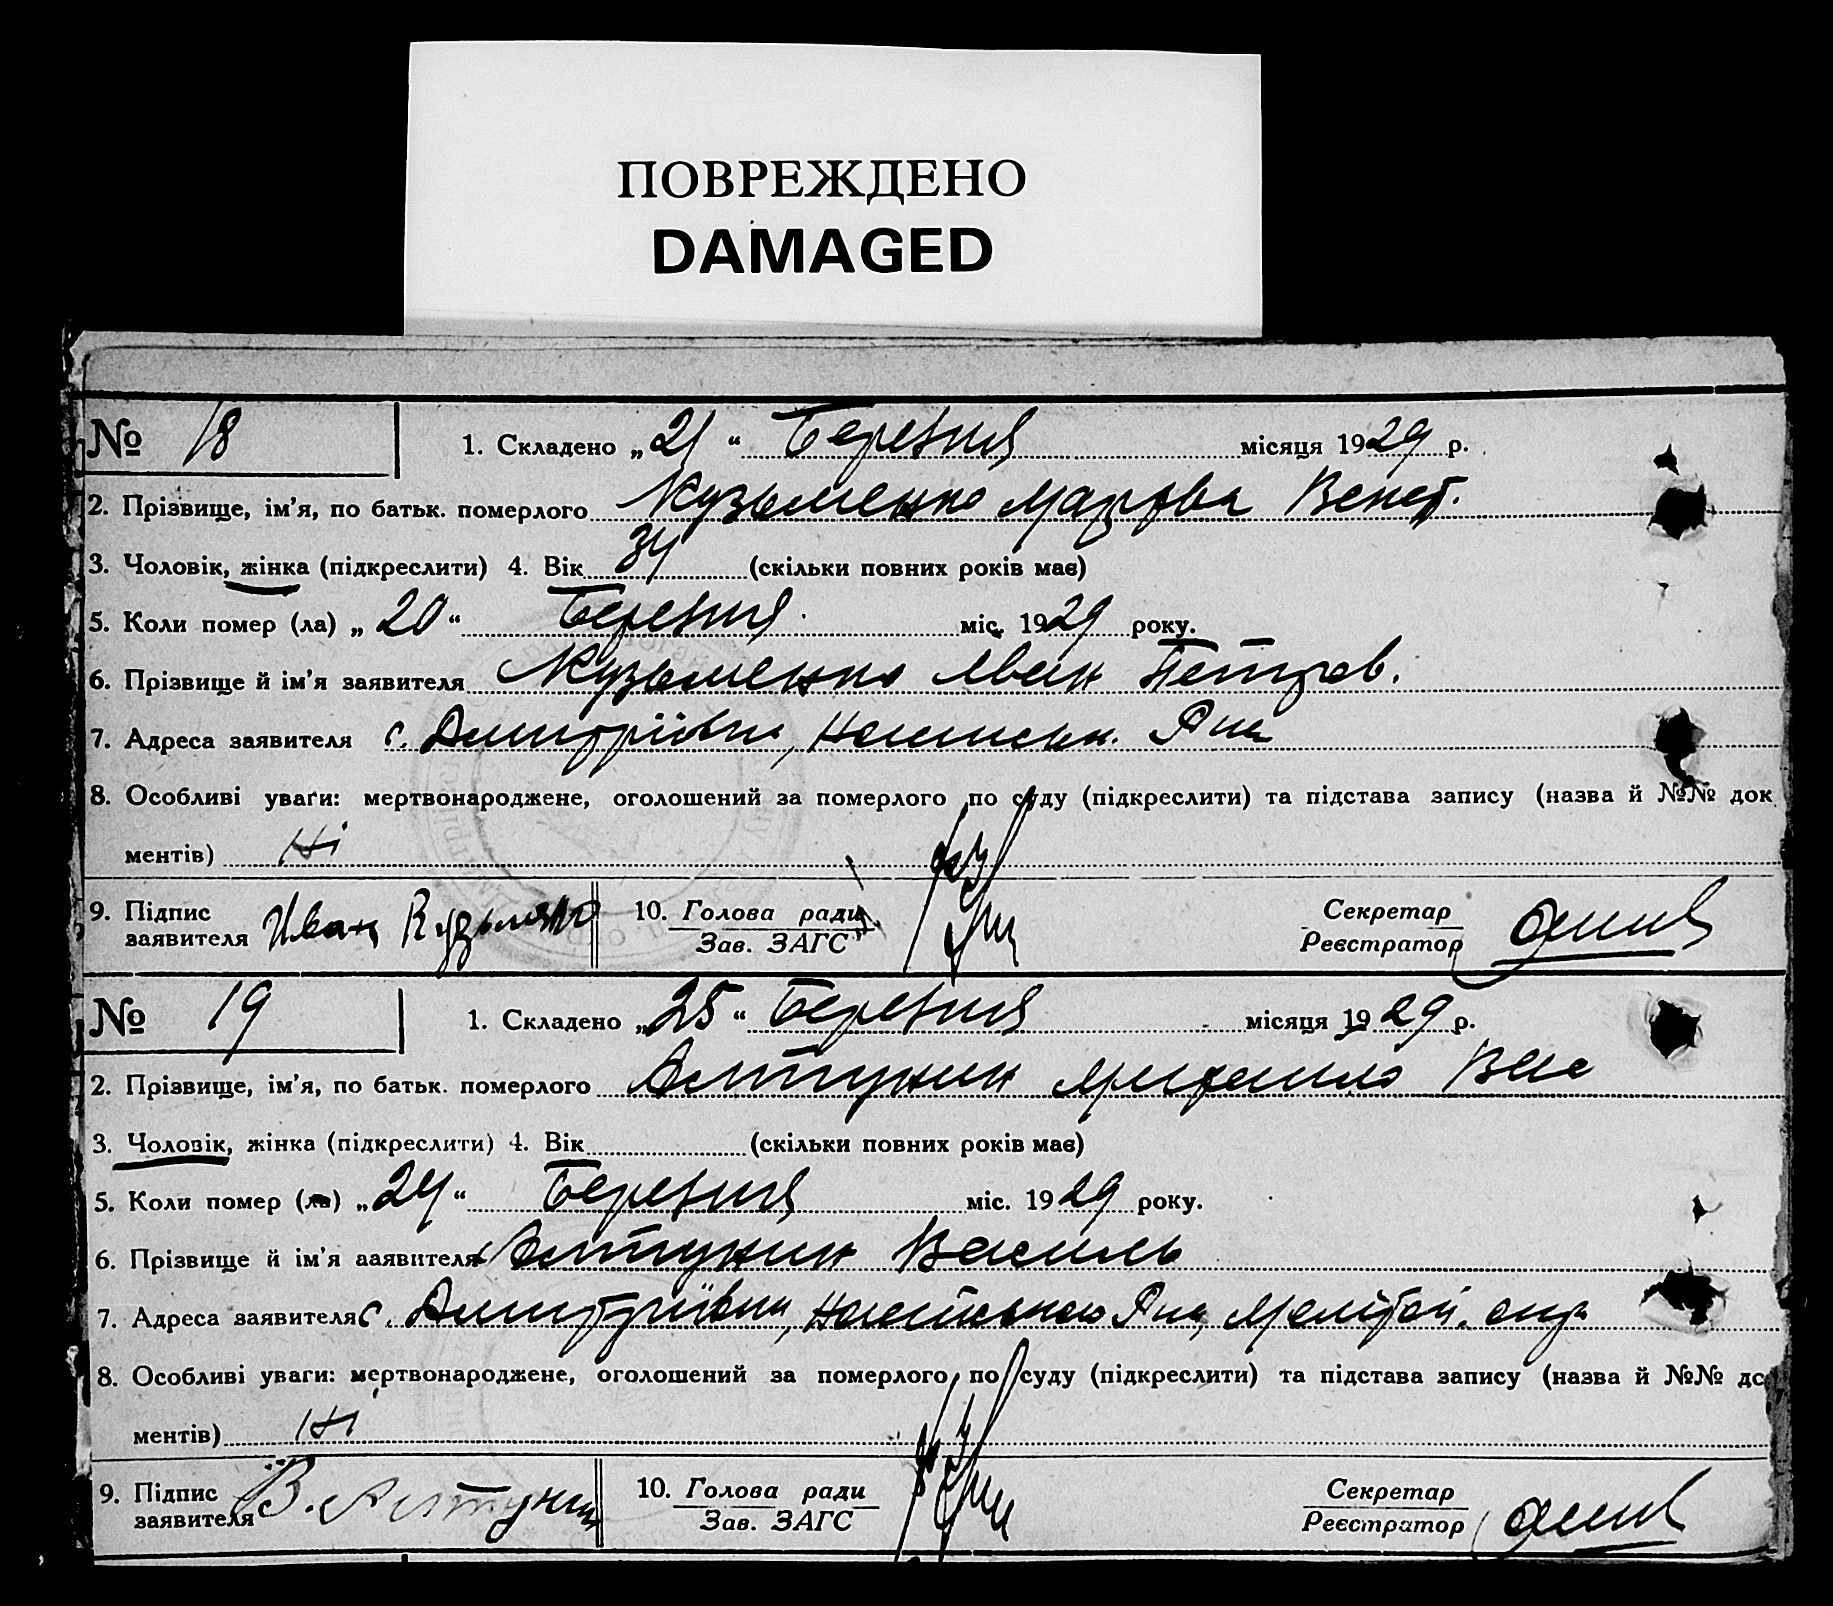 ПОВРЕЖДЕНО
DAMAGED
№ 18
1. Складено „21“ Березня місяця 1929 р.
2. Прізвище, ім'я, по батьк. померлого Кузьменко Марфа Венед.
3. Чоловік, жінка (підкреслити) 4. Вік 34 (скільки повних років має)
5. Коли помер (ла) „20“ Березня міс. 1929 року.
6. Прізвище й ім'я заявителя Кузьменко Іван Петров.
7. Адреса заявителя с. Дмитрівка, Р-на
8. Особливі уваги: мертвонароджене, оголошений за померлого по суду (підкреслити) та підстава запису (назва й №№ док
ментів) Ні
9. Підпис заявителя Иван Кузьменко
10. Голова ради
Зав. ЗАГС
Секретар
Реєстратор
№ 19
1. Складено „25“ Березня місяця 1929 р.
2. Прізвище, ім'я, по батьк. померлого Алтунин Михайло Вас
3. Чоловік, жінка (підкреслити) 4. Вік (скільки повних років має)
5. Коли помер (ла) „24“ Березня міс. 1929 року.
6. Прізвище й ім'я заявителя Алтунин Василь
7. Адреса заявителя с. Дмитрівки, Р-на, Мелітоп. окр.
8. Особливі уваги: мертвонароджене, оголошений за померлого, по суду (підкреслити) та підстава запису (назва й №№ до
ментів) Ні
9. Підпис заявителя В. Алтунин
10. Голова ради
Зав. ЗАГС
Секретар
Реєстратор